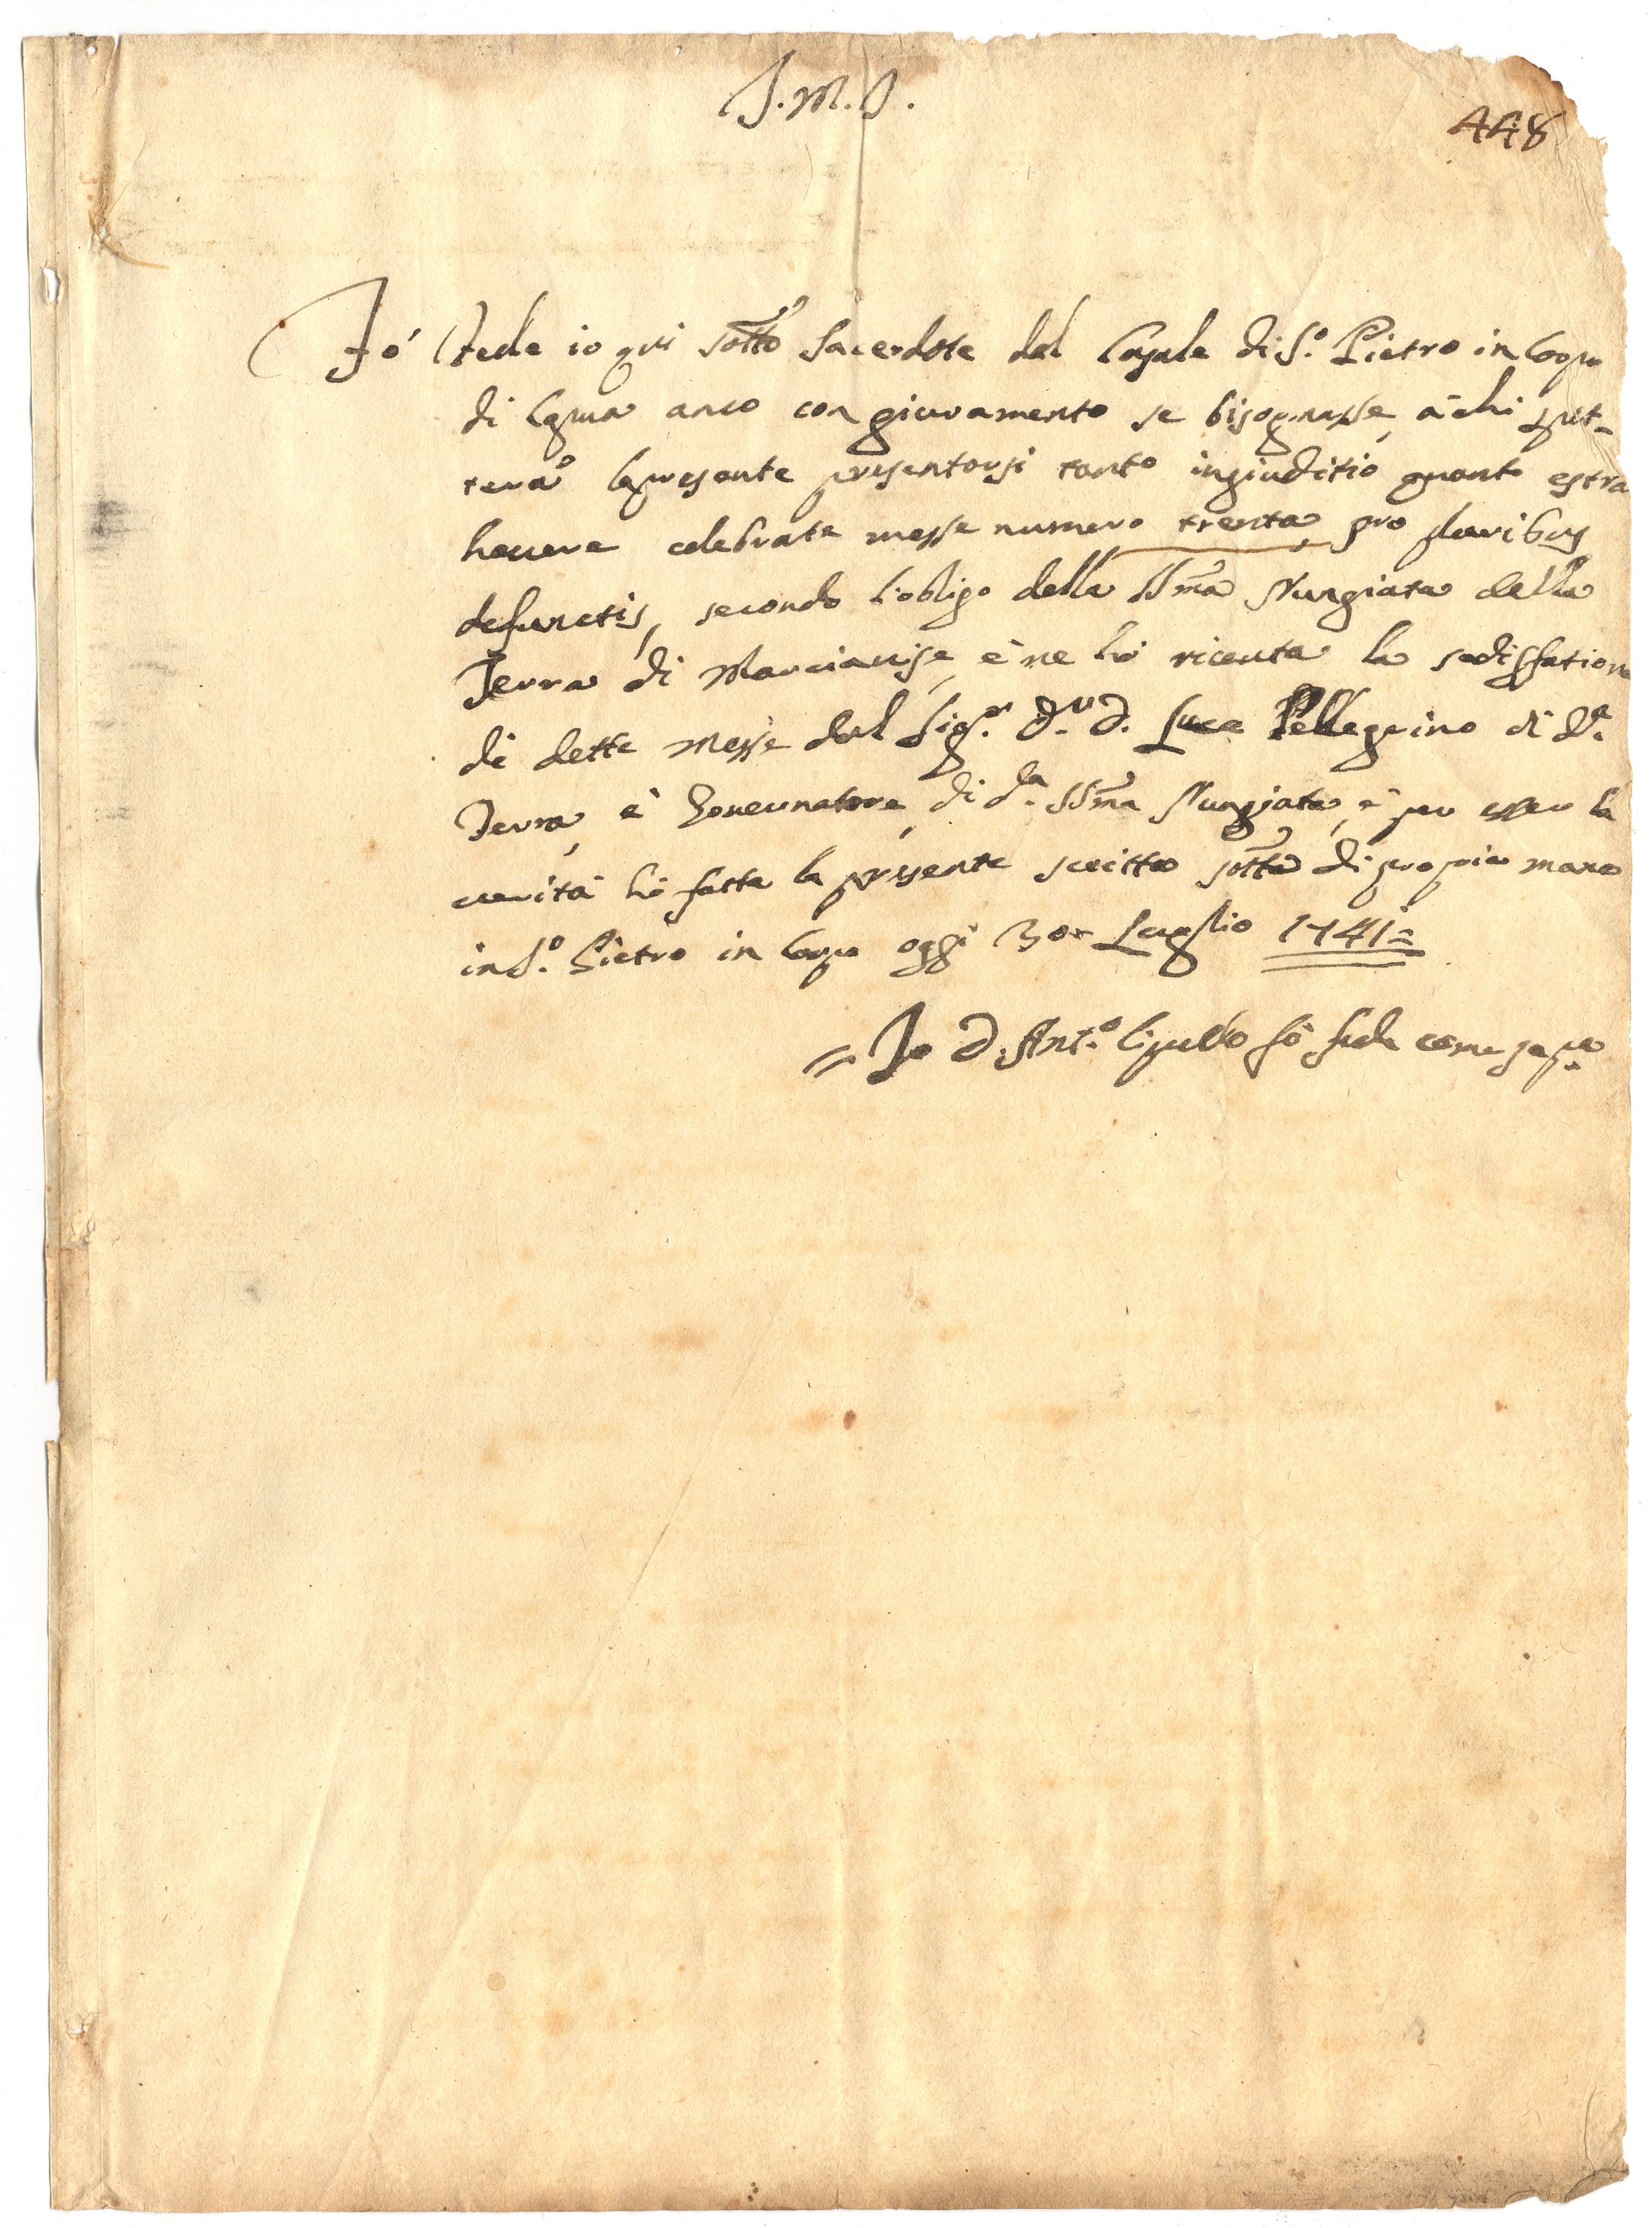 J.M.J.
448
Fò fede io qui sotto Sacerdote del Casale di S.º Pietro in Corpo
di Capua anco con giuramento se bisognasse, à chi spet-
terà la presente presentarsi tanto in giuditio quanto estra
havere celebrate messe numero trenta, pro pluribus
defunctis, secondo l'obligo della SS.ma Nunziata della
Terra di Marcianise, è ne hò riceuta la sodisfatione
di dette Messe dal Sig.r D.r D. Luca Pellegrino di d.ª
Terra, è Governatore, di d.ª SS.ma Nunziata, è per esser la
verità hò fatta la presente scritta sotto di propria mano
in S.º Pietro in Corpo oggi 30 Luglio 1741=
= Io D. Ant.º fò fede come sop.ª